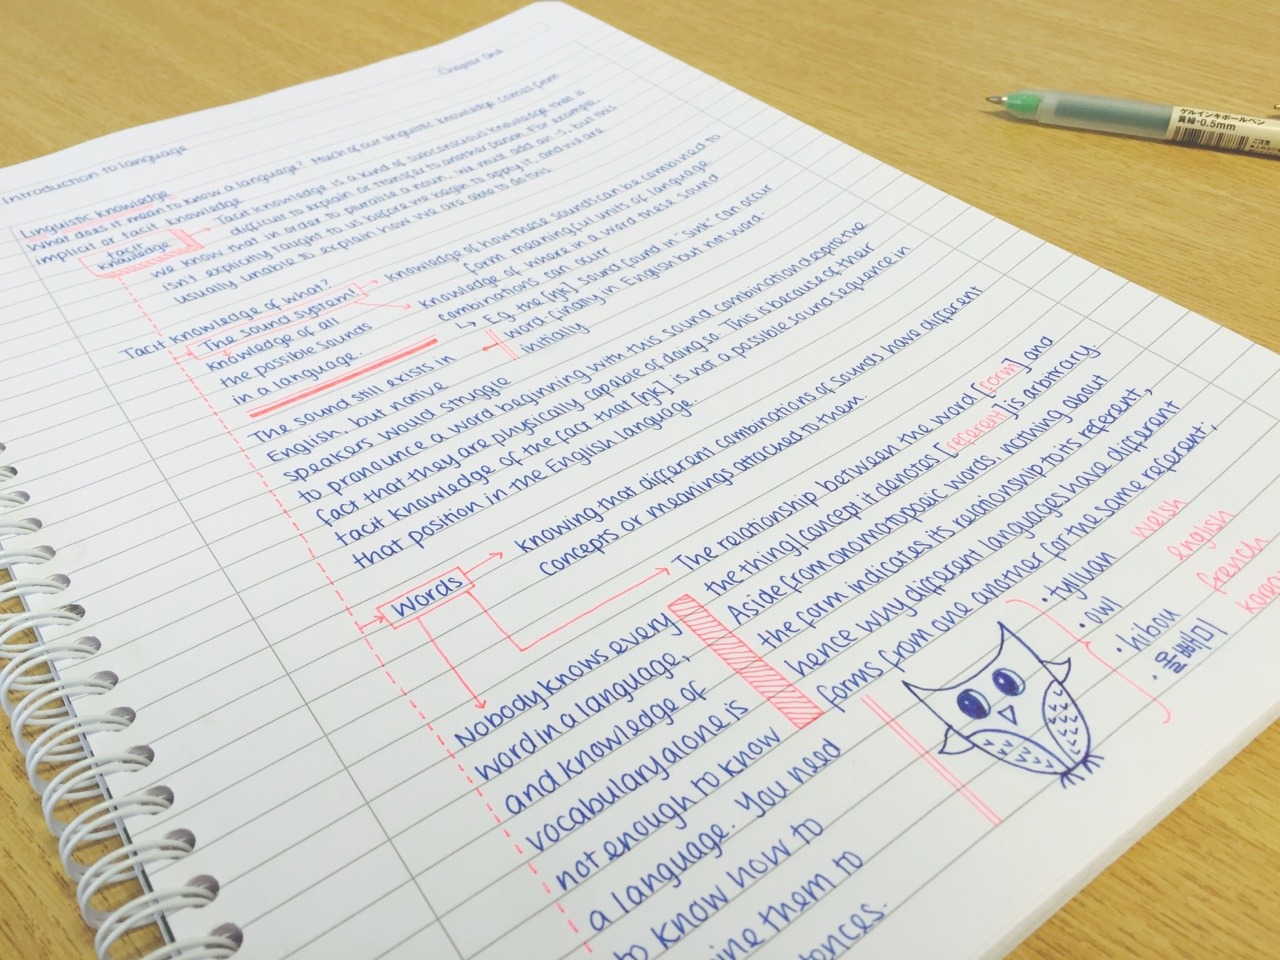 Chapter One
Introduction to language
Linguistic knowledge
What does it mean to know a language? Much of our linguistic knowledge comes from
implicit or tacit knowledge
tacit
knowledge
Tacit knowledge is a kind of subconscious knowledge that is
difficult to explain or transfer to another person. For example,
we know that in order to pluralise a noun, we must add an -s, but this
isn't explicitly taught to us before we begin to apply it, and we are
usually unable to explain how we are able to do this
Tacit knowledge of what?
The sound system!
knowledge of all
the possible sounds
in a language.
knowledge of how these sounds can be combined to
form meaningful units of language
knowledge of where in a word these sound
combinations can occur
↳ E.g. the [ŋk] sound found in "sink" can occur
word-finally in English but not word-
initially
The sound still exists in
English, but native
speakers would struggle
to pronounce a word beginning with this sound combination despite the
fact that they are physically capable of doing so. This is because of their
tacit knowledge of the fact that [ŋk] is not a possible sound sequence in
that position in the English language.
Words
knowing that different combinations of sounds have different
concepts or meanings attached to them.
The relationship between the word [form] and
the thing/concept it denotes [referent] is arbitrary.
Aside from onomatopoeic words, nothing about
the form indicates its relationship to its referent,
hence why different languages have different
forms from one another for the same referent;
• tylluan welsh
• owl english
• hibou french
• 올빼미 korean
Nobody knows every
word in a language,
and knowledge of
vocabulary alone is
not enough to know
a language. You need
to know how to
them to
ゲルインキボールペン
黄緑・0.5mm